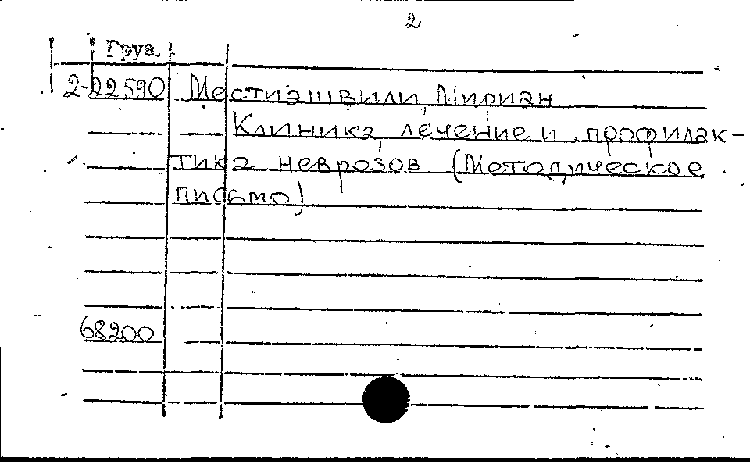 2
Груз.
2-22590 Местиашвили, Мириан
Клиника, лечение и профилак-
тика неврозов (Методическое
письмо)
68200